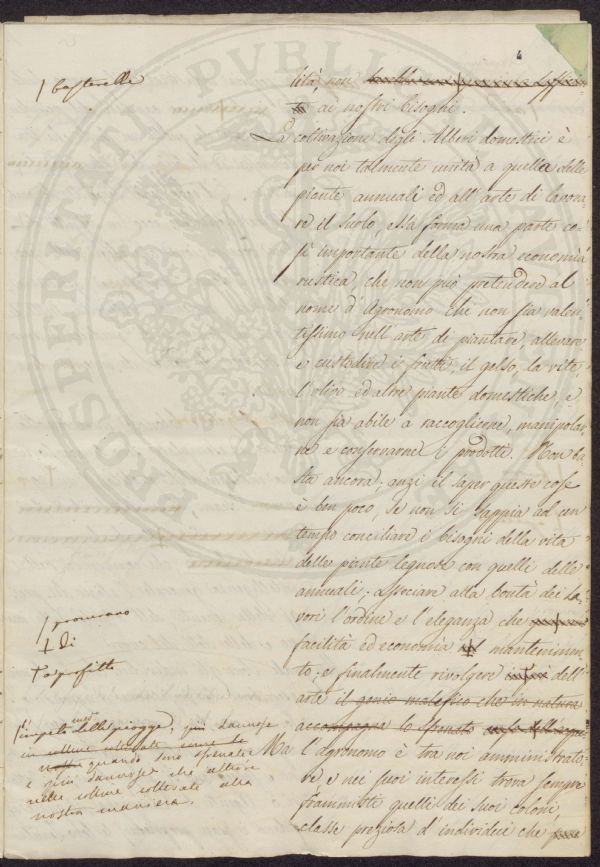 4
/ basterelle
lità, non
ai nostri bisogni.
La coltivazione degli Alberi domestici è
per noi talmente unita a quella delle
piante annuali ed all'arte di lavora-
re il suolo, ella forma una parte co-
sì importante della nostra economia
rustica, che non può pretendere al
nome d'Agronomo chi non sia valen-
tissimo nell'arte di piantare, allevare
e custodire i frutti, il gelso, la vite,
l'olivo ed altre piante domestiche, e
non sia abile a raccoglierne, manipolar-
ne e conservarne i prodotti. Non ba-
sta ancora; anzi il saper queste cose
è ben poco, se non si sappia ad un
tempo conciliare i bisogni della vita
delle piante legnose con quelli delle
annuali; associare alla bontà dei la-
vori l'ordine e l'eleganza che
/ procurano
facilità ed economia
+ di
mantenimen-
to; e finalmente rivolgere
a profitto
dell'
arte il genio malefico che in natura
accompagna lo spesato
impeto delle piogge, più dannose
quando sono
e più dannose che altrove
nelle colline coltivate alla
nostra maniera.
Ma l'agronomo è tra noi amministrato-
re e nei suoi interessi trova sempre
frammisti quelli dei suoi coloni,
classe preziosa d'individui che
PROSPERITATI PVBLICAE